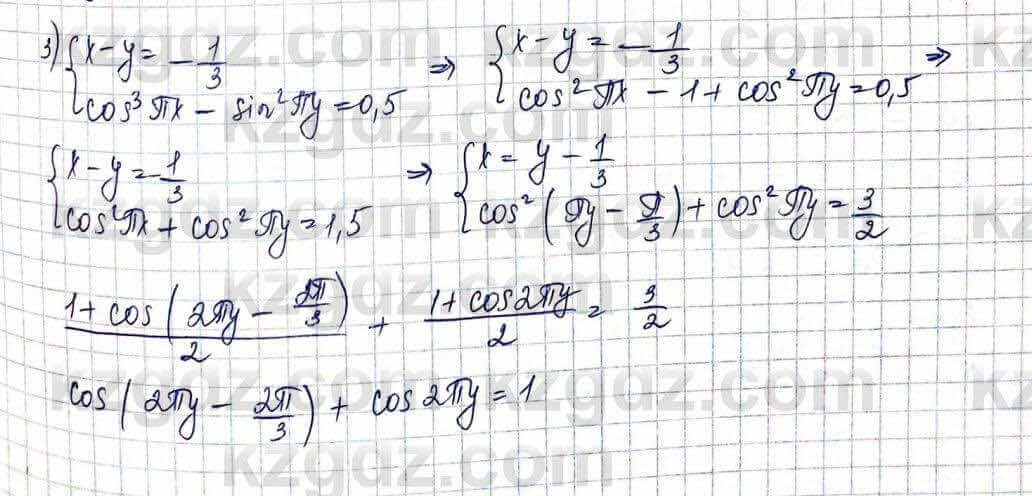 3) { x − y = − 1/3 ⇒ { x − y = − 1/3 ⇒
{ cos³ πx − sin² πy = 0,5 { cos² πx − 1 + cos² πy = 0,5
{ x − y = − 1/3 ⇒ { x = y − 1/3
{ cos² πx + cos² πy = 1,5 { cos² ( πy − π/3 ) + cos² πy = 3/2
(1 + cos ( 2πy − 2π/3 ))/2 + (1 + cos 2πy)/2 = 3/2
cos ( 2πy − 2π/3 ) + cos 2πy = 1
kzgdz.com
kzgdz.com
kzgdz.com
kzgdz.com
kzgdz.com